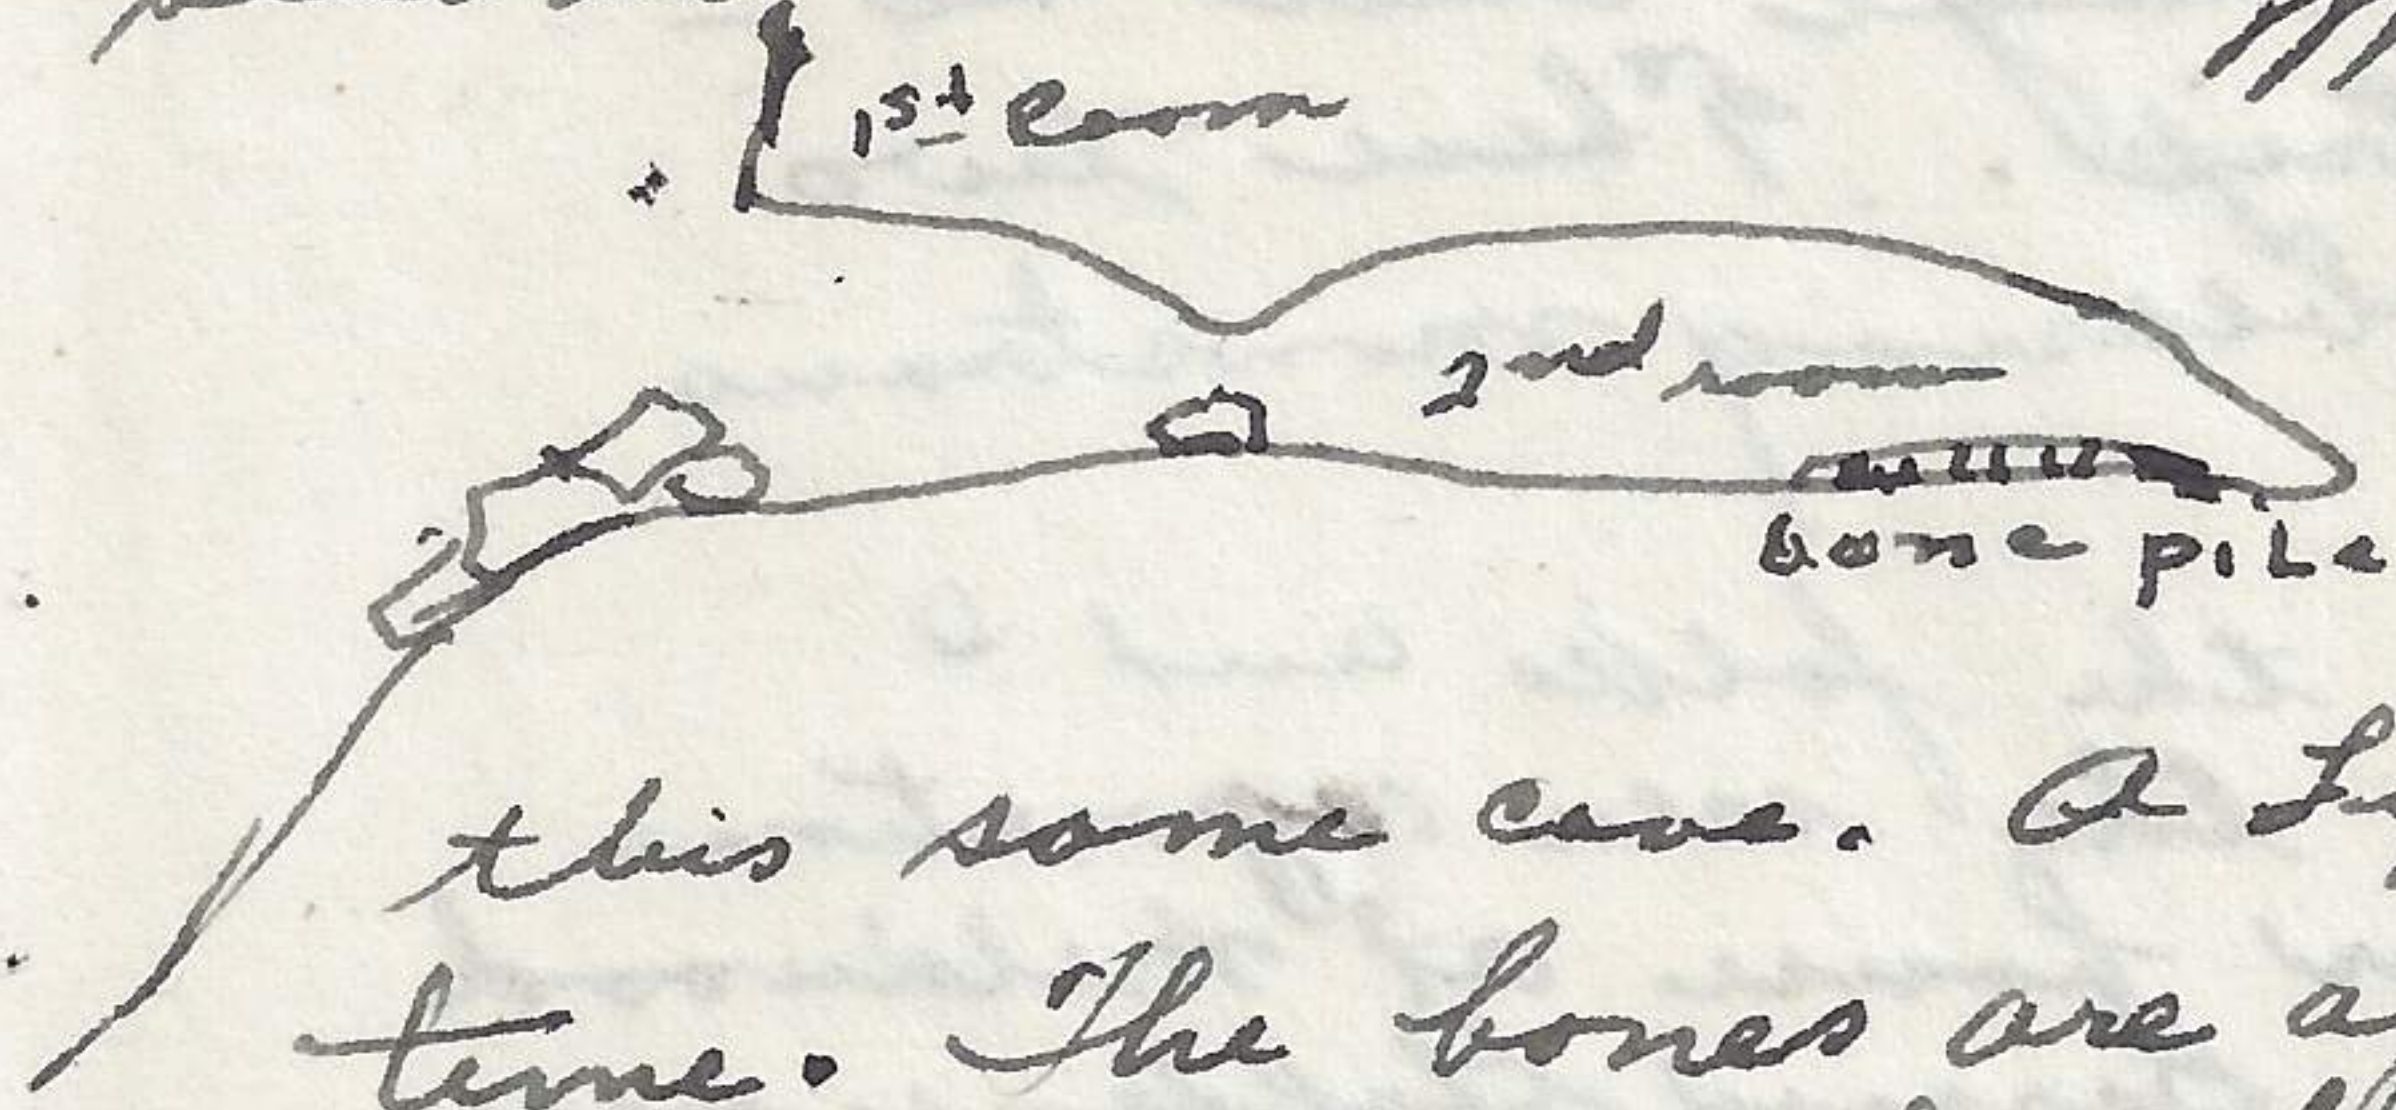 1st Room
2nd room
bone pile
this same cave. A
time. The bones are